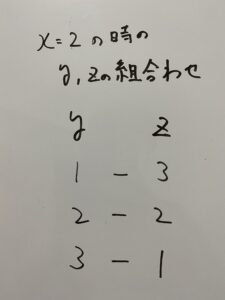 x=2の時の
y,zの組合わせ
y z
1 - 3
2 - 2
3 - 1